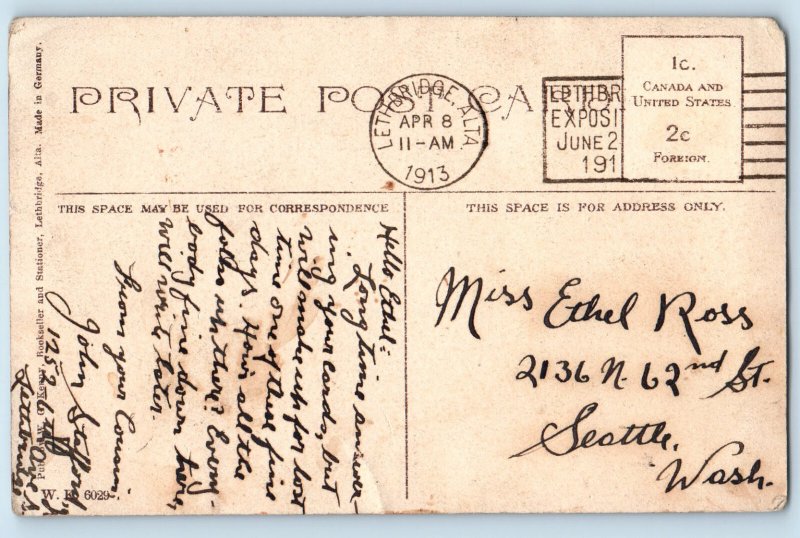 PRIVATE POST CARD
LETHBRIDGE, ALTA
APR 8
11-AM
1913
LETHBR
EXPOSIT
JUNE 2
191
1c.
CANADA AND
UNITED STATES
2c
FOREIGN.
THIS SPACE MAY BE USED FOR CORRESPONDENCE
THIS SPACE IS FOR ADDRESS ONLY.
Hello Ethel:-
Long time answer-
ing your cards, but
will make up for lost
time one of these fine
days. How's all the
folks up there? Every-
body fine down here,
will write later.
From your Cousin
John Stafford,
Lethbridge
Miss Ethel Ross
2136 N. 62nd St.
Seattle,
Wash.
Bookseller and Stationer, Lethbridge, Alta. Made in Germany.
6029